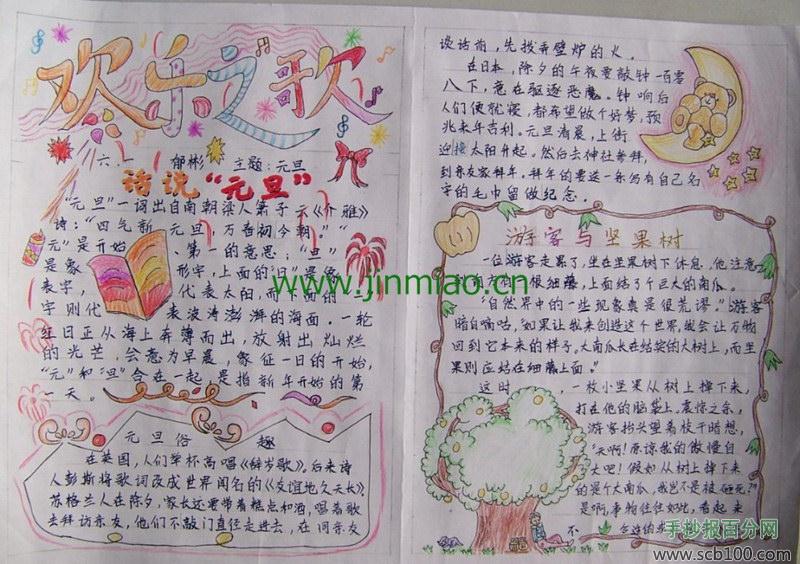 欢乐之歌
六.一 郁彬 主题:元旦
话说“元旦”
“元旦”一词出自南朝梁人萧子云《介雅》
诗:“四气新元旦,万寿初今朝。”“
元”是开始、第一的意思;“旦”
是象形字,上面的“日”是
表字,代表太阳,而下面的“一”
字则代表波涛澎湃的海面。一轮
红日正从海上奔薄而出,放射出灿烂
的光芒。会意为早晨,象征一日的开始,
“元”和“旦”合在一起,是指新年开始的第
一天。
元旦俗趣
在英国,人们举杯高唱《辞岁歌》,后来诗
人彭斯将歌词改成世界闻名的《友谊地久天长》,
苏格兰人在除夕,家长还要带着糕点和酒,唱着歌
去拜访亲友,他们不敲门直径走进去,在同亲友
谈话前,先拨弄壁炉的火。
在日本,除夕的午夜要敲钟一百零
八下,意在驱逐恶魔。钟响后
人们便就寝,都希望做个好梦,预
兆来年吉利。元旦清晨,上街
迎接太阳升起。然后去神社参拜,
到亲友家拜年。拜年的要送一条写有自己名
字的毛巾留做纪念。
游客与坚果树
一位游客走累了,坐在坚果树下休息,他注意
根细藤,上面结了个巨大的南瓜。
“自然界中的一些现象真是很荒谬。”游客
暗自嘀咕,“如果让我来创造这个世界,我会让万物
回到它本来的样子。大南瓜长在结实的大树上,而坚
果则应结在细藤上面。”
这时,一枚小坚果从树上掉下来,
打在他的脑袋上,震惊之余,
游客抬头望着枝干暗想,
“天啊!原谅我的傲慢自
大吧!假如从树上掉下来
的是个大南瓜,我岂不是被砸死?”
是啊,事物往往如此,看起来
不合理的
www.jinmiao.cn
手抄报百分网
www.scb100.com